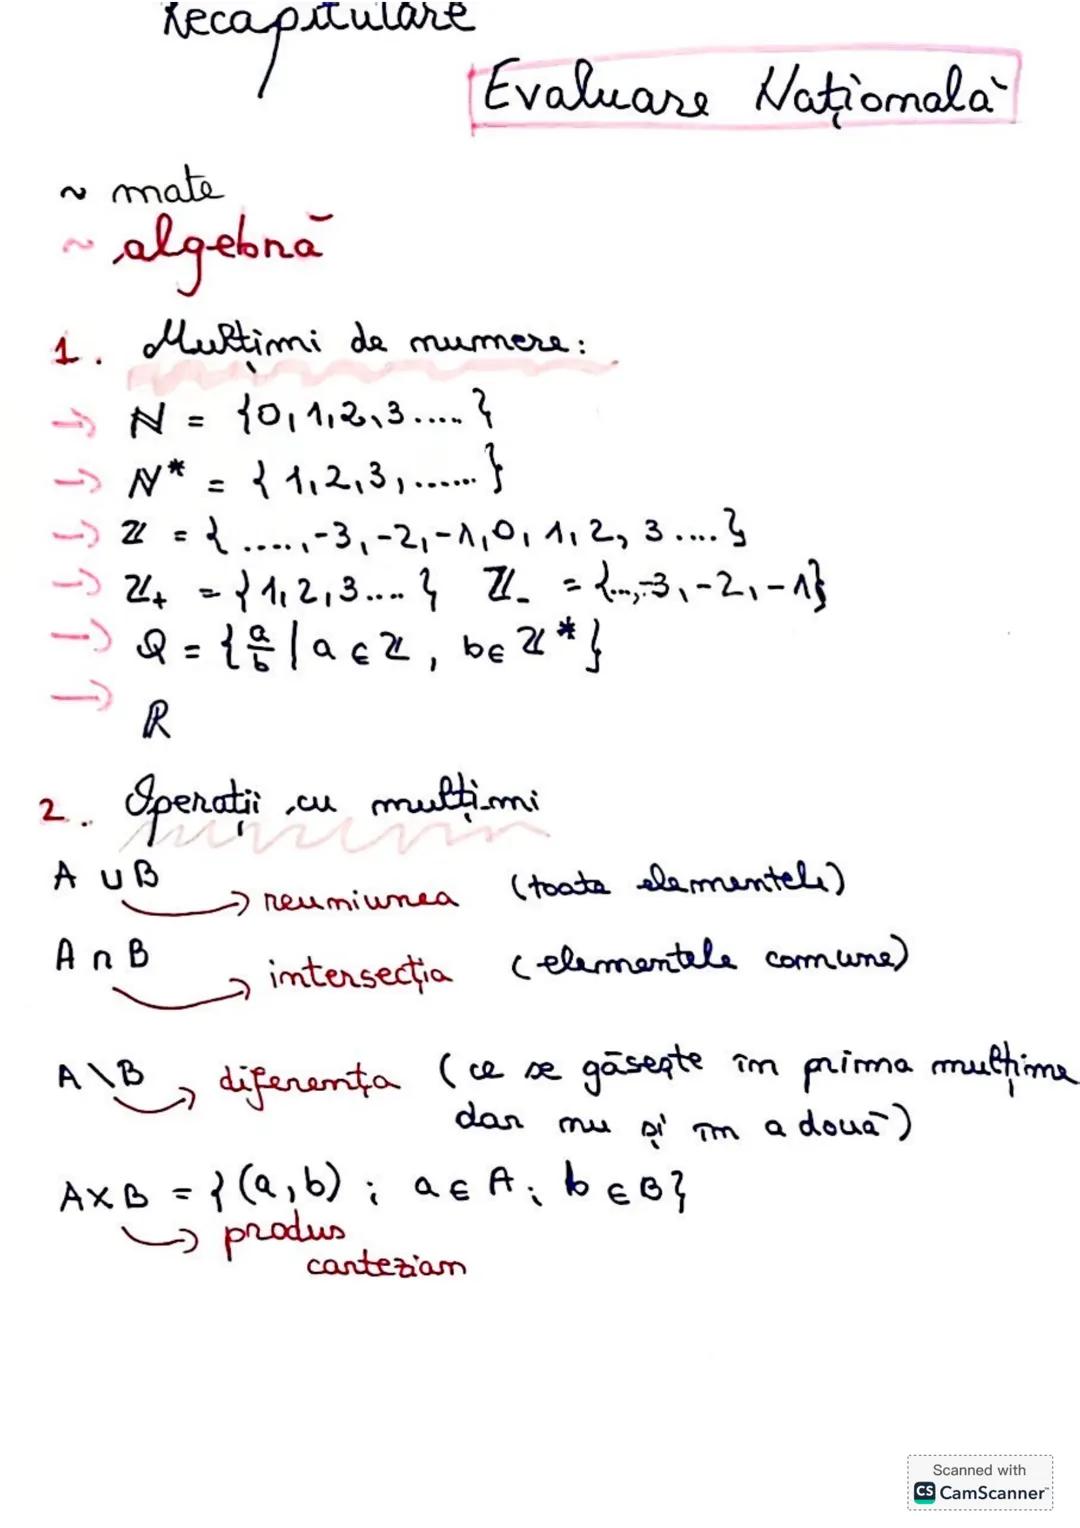 Recapitulare
Evaluare Națională
~ mate
~ algebră
1. Mulțimi de numere:
→ N = {0,1,2,3.....}
→ N* = {1,2,3,......}
→ Z = {....,-3,-2,-1,0,1,2,3....}
→ Z₊ = {1,2,3....} Z₋ = {...,-3,-2,-1}
→ Q = {a/b | a ∈ Z, b ∈ Z*}
→ R
2. Operații cu mulțimi
A ∪ B → reuniunea (toate elementele)
A ∩ B → intersecția (elementele comune)
A \ B → diferența (ce se găsește în prima mulțime
dar nu și în a două)
A×B = {(a,b) ; a ∈ A; b ∈ B}
→ produs
cartezian
Scanned with
CS CamScanner